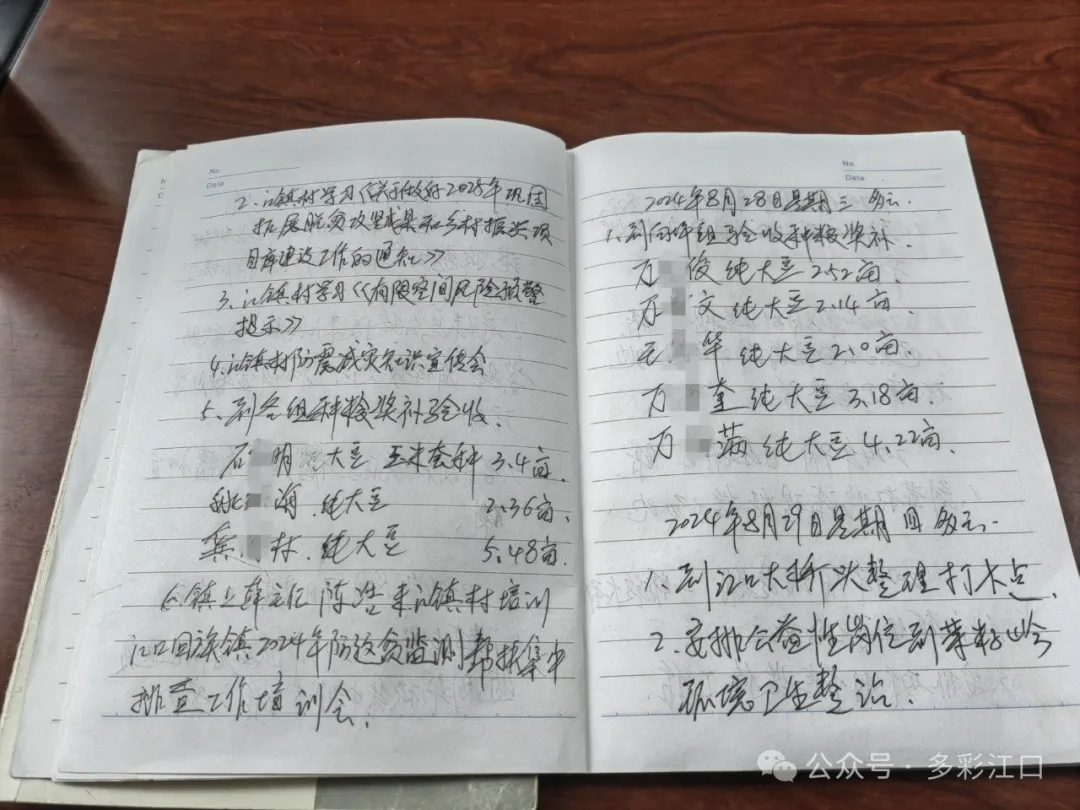 No.
Date
2.江镇村学习《关于做好2025年巩固
拓展脱贫攻坚成果和乡村振兴项
目库建设工作的通知》
3.江镇村学习《有限空间风险预警
提示》
4.江镇村防震减灾知识宣传会
5.到各组种粮奖补验收.
石 明 大豆 玉米套种 3.4亩.
姚 海.纯大豆 2.36亩.
龚 林.纯大豆 5.48亩.
6.镇上 主任 陈浩来江镇村培训
江口回族镇2024年防返贫监测帮扶集中
排查工作培训会.
No.
Date
2024年8月28日星期三 多云.
1.到 组验收种粮奖补.
万 俊纯大豆2.52亩.
万 文纯大豆2.14亩.
王 华纯大豆2.0亩.
万 奎纯大豆3.18亩.
万 满纯大豆4.22亩.
2024年8月29日星期四 多云.
1.到江口大桥头整理打卡点.
2.安排公益性岗位到菜籽岭
环境卫生整治.
公众号·多彩江口